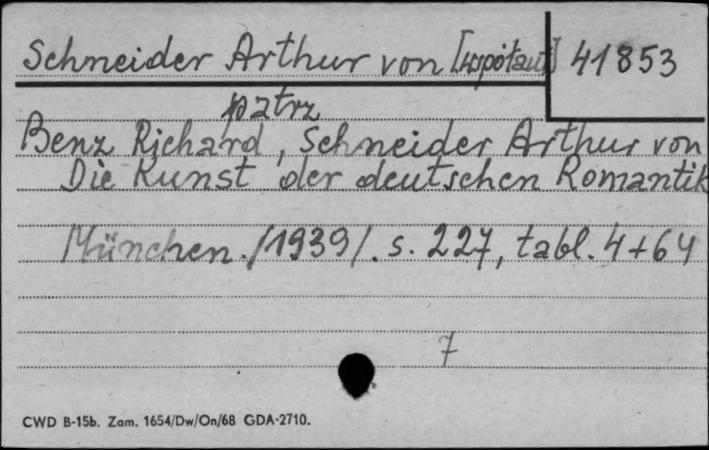 Schneider Arthur von [współaut] 41853
patrz
Benz Richard, Schneider Arthur von
Die Kunst der deutschen Romantik
München. /1939/. s. 227, tabl. 4+64
7
CWD B-15b. Zam. 1654/Dw/On/68 GDA-2710.